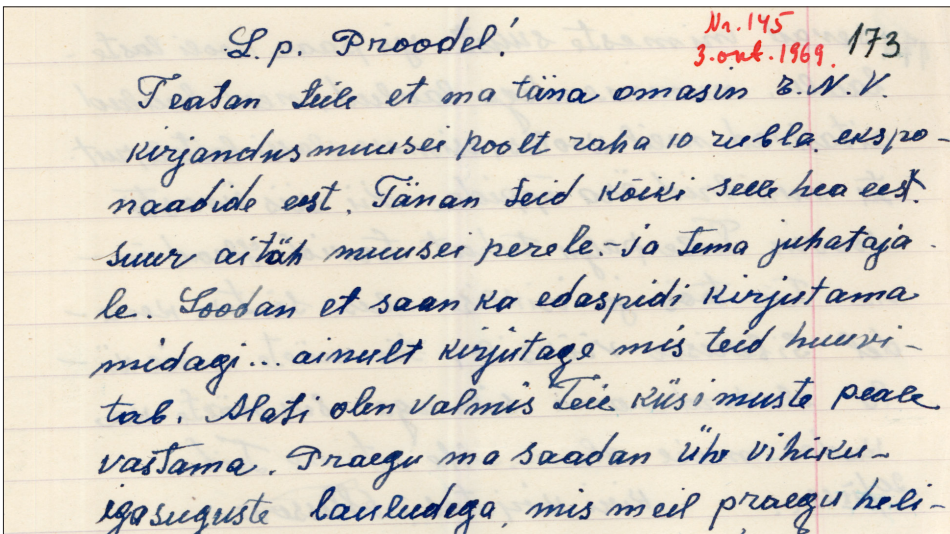 L. p. Proodel!
Nr. 145
3. okt. 1969.
173
Teatan Teile et ma täna omasin E.N.V.
kirjandusmuusei poolt raha 10 rubla ekspo-
naadide eest. Tänan Teid kõiki selle hea eest.
suur aitäh muusei perele.- ja tema juhataja-
le. Loodan et saan ka edaspidi kirjutama
midagi... ainult kirjutage mis teid huuvi-
tab. Alati olen valmis Teie küsimuste peale
vastama. Praegu ma saadan ühe vihiku-
igasuguste lauludega, mis meil praegu heli-